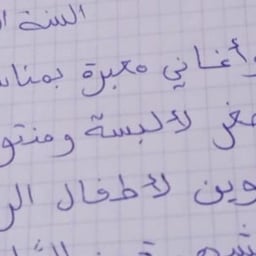 السنة ا
وأغاني معبرة بمنا
لألبسة ومنتو
وين لأطفال الر